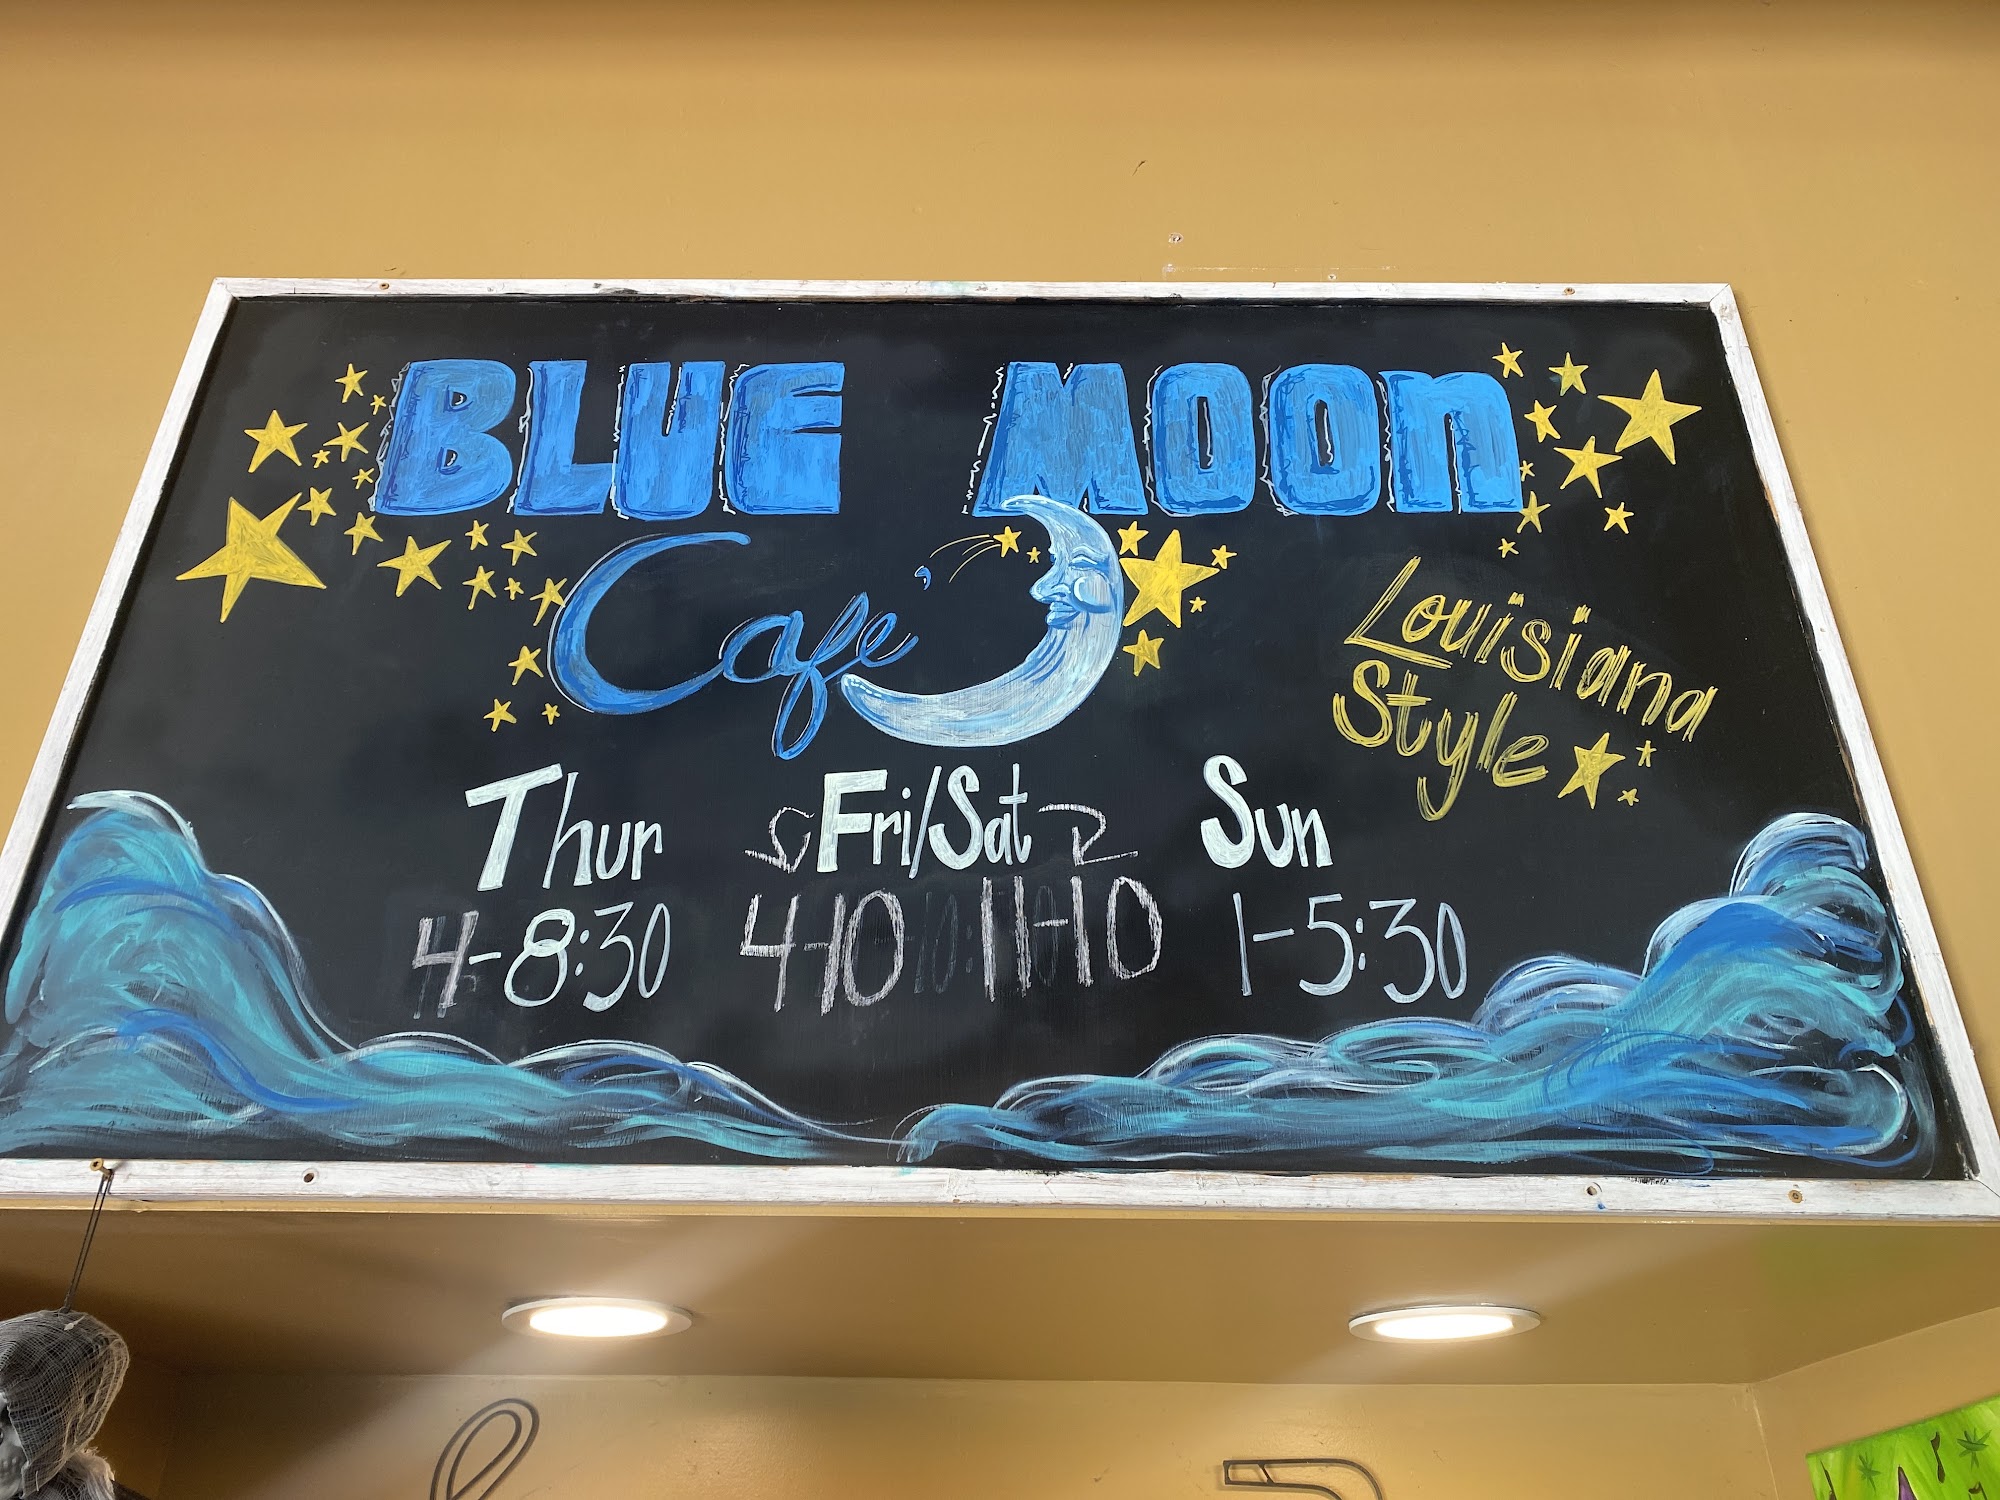 BLUE MOON
Cafe'
Louisiana
Style
Thur Fri/Sat Sun
4-8:30 4-10 11-10 1-5:30